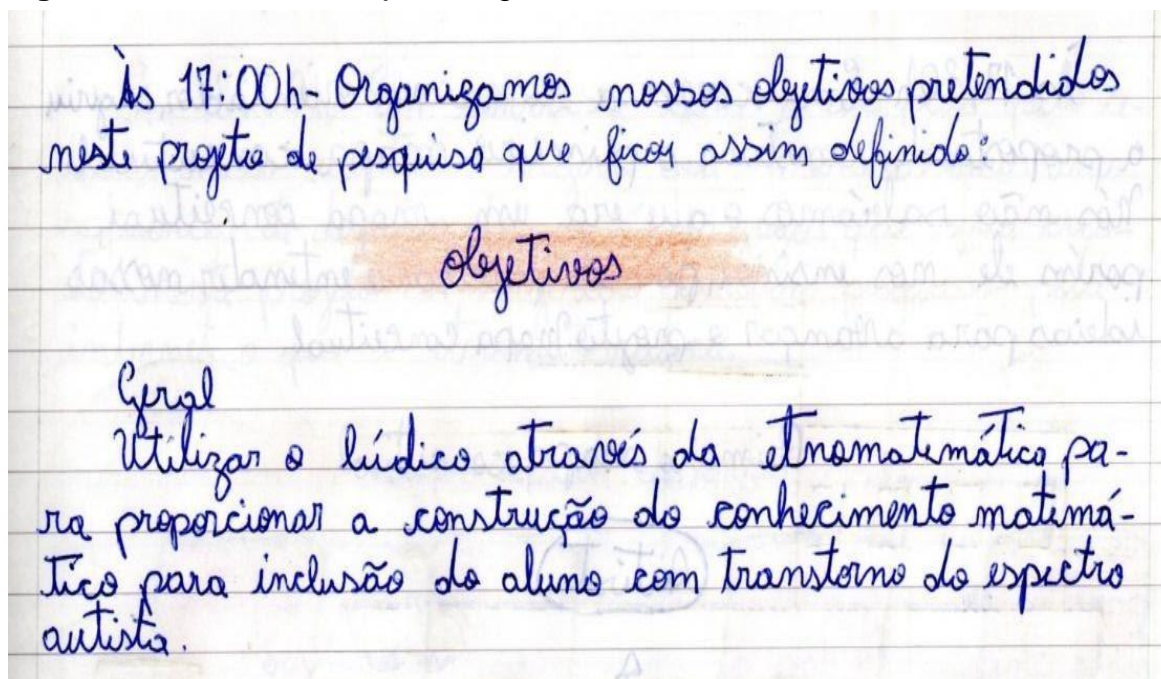 Às 17:00h- Organizamos nossos objetivos pretendidos
neste projeto de pesquisa que ficou assim definido:
objetivos
Geral
Utilizar o lúdico através da etnomatemática pa-
ra proporcionar a construção do conhecimento matemá-
tico para inclusão do aluno com transtorno do espectro
autista.